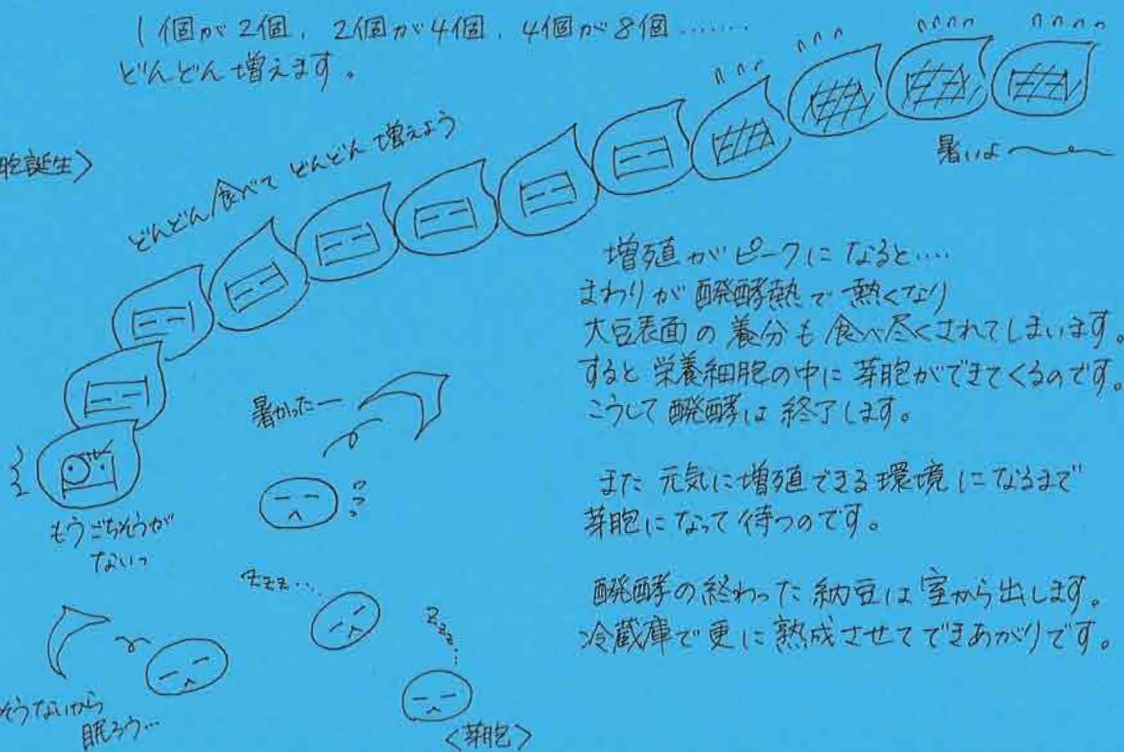 1個が2個, 2個が4個, 4個が8個……
どんどん増えます。
胞誕生>
どんどん食べて どんどん増えよう
暑いよ〜
増殖がピークになると‥‥
まわりが醗酵熱で熱くなり
大豆表面の養分も食べ尽くされてしまいます。
すると栄養細胞の中に芽胞ができてくるのです。
こうして醗酵は終了します。
暑かったー
もうごちそうが
ないっ
また元気に増殖できる環境になるまで
芽胞になって待つのです。
zzz…
zzz…
醗酵の終わった納豆は室から出します。
冷蔵庫で更に熟成させてできあがりです。
そうないから
眠ろう…
<芽胞>